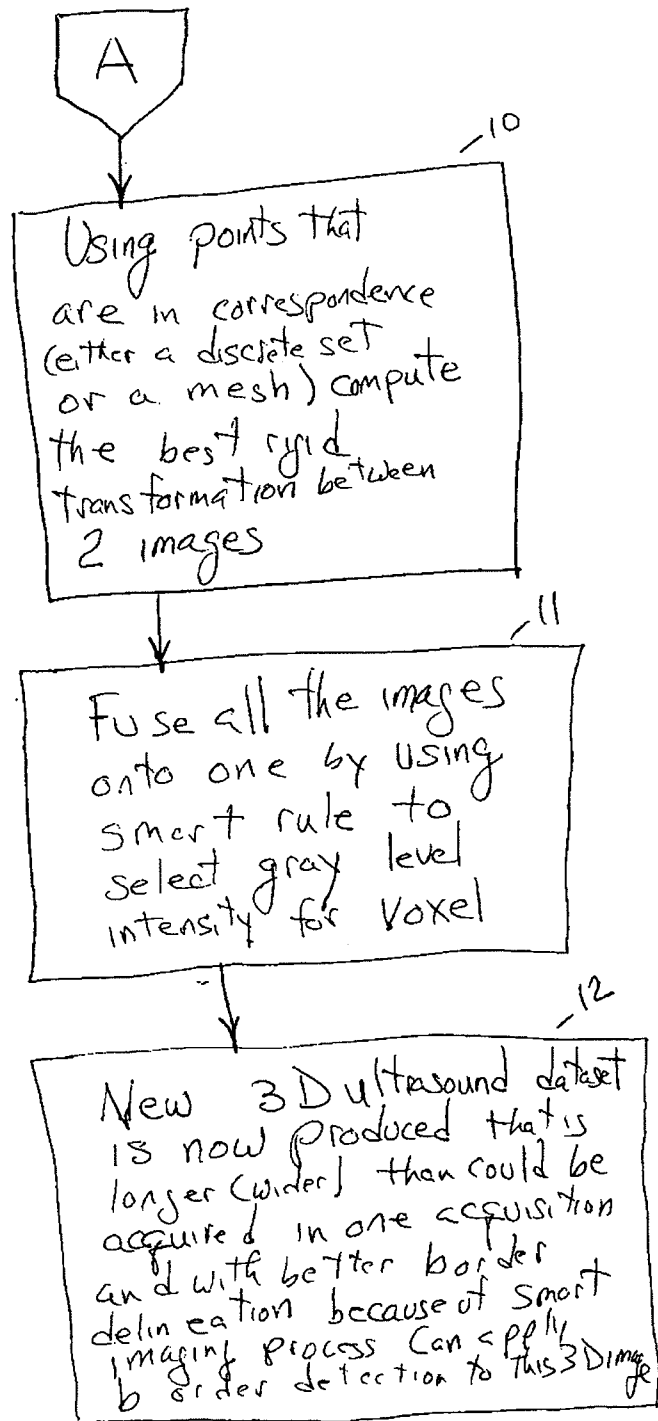 A
10
Using points that
are in correspondence
(either a discrete set
or a mesh) compute
the best rigid
transformation between
2 images
11
Fuse all the images
onto one by using
smart rule to
select gray level
intensity for voxel
12
New 3D ultrasound dataset
is now produced that is
longer (wider) than could be
acquired in one acquisition
and with better border
delineation because of smart
imaging process Can apply
border detection to this 3D image